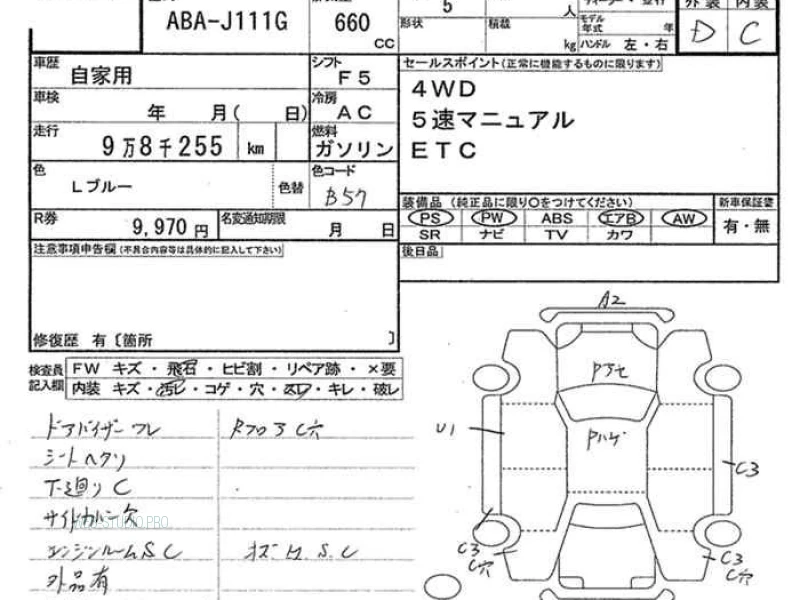 ABA-J111G
660
CC
5
人
形状
積載
モデル年式
年
kg
ハンドル 左・右
外装
内装
D
C
車歴
自家用
シフト
F5
車検
年 月( 日)
冷房
AC
走行
9万8千255 km
燃料
ガソリン
色
Lブルー
色替
色コード
B57
R券
9,970 円
名変通知期限
月 日
セールスポイント(正常に機能するものに限ります)
4WD
5速マニュアル
ETC
装備品 (純正品に限り○をつけてください)
PS PW ABS エアB AW
SR ナビ TV カワ
新車保証書
有・無
後日品
注意事項申告欄(不具合内容等は具体的に記入して下さい)
修復歴 有〔箇所 〕
検査員記入欄
FW キズ・飛石・ヒビ割・リペア跡・×要
内装 キズ・汚レ・コゲ・穴・スレ・キレ・破レ
ドアバイザーワレ
シートヘタリ
下廻りC
エンジンルームSC
外品有
A2
Pアセ
Pハゲ
U1
C3
C3
C穴
C3
C穴